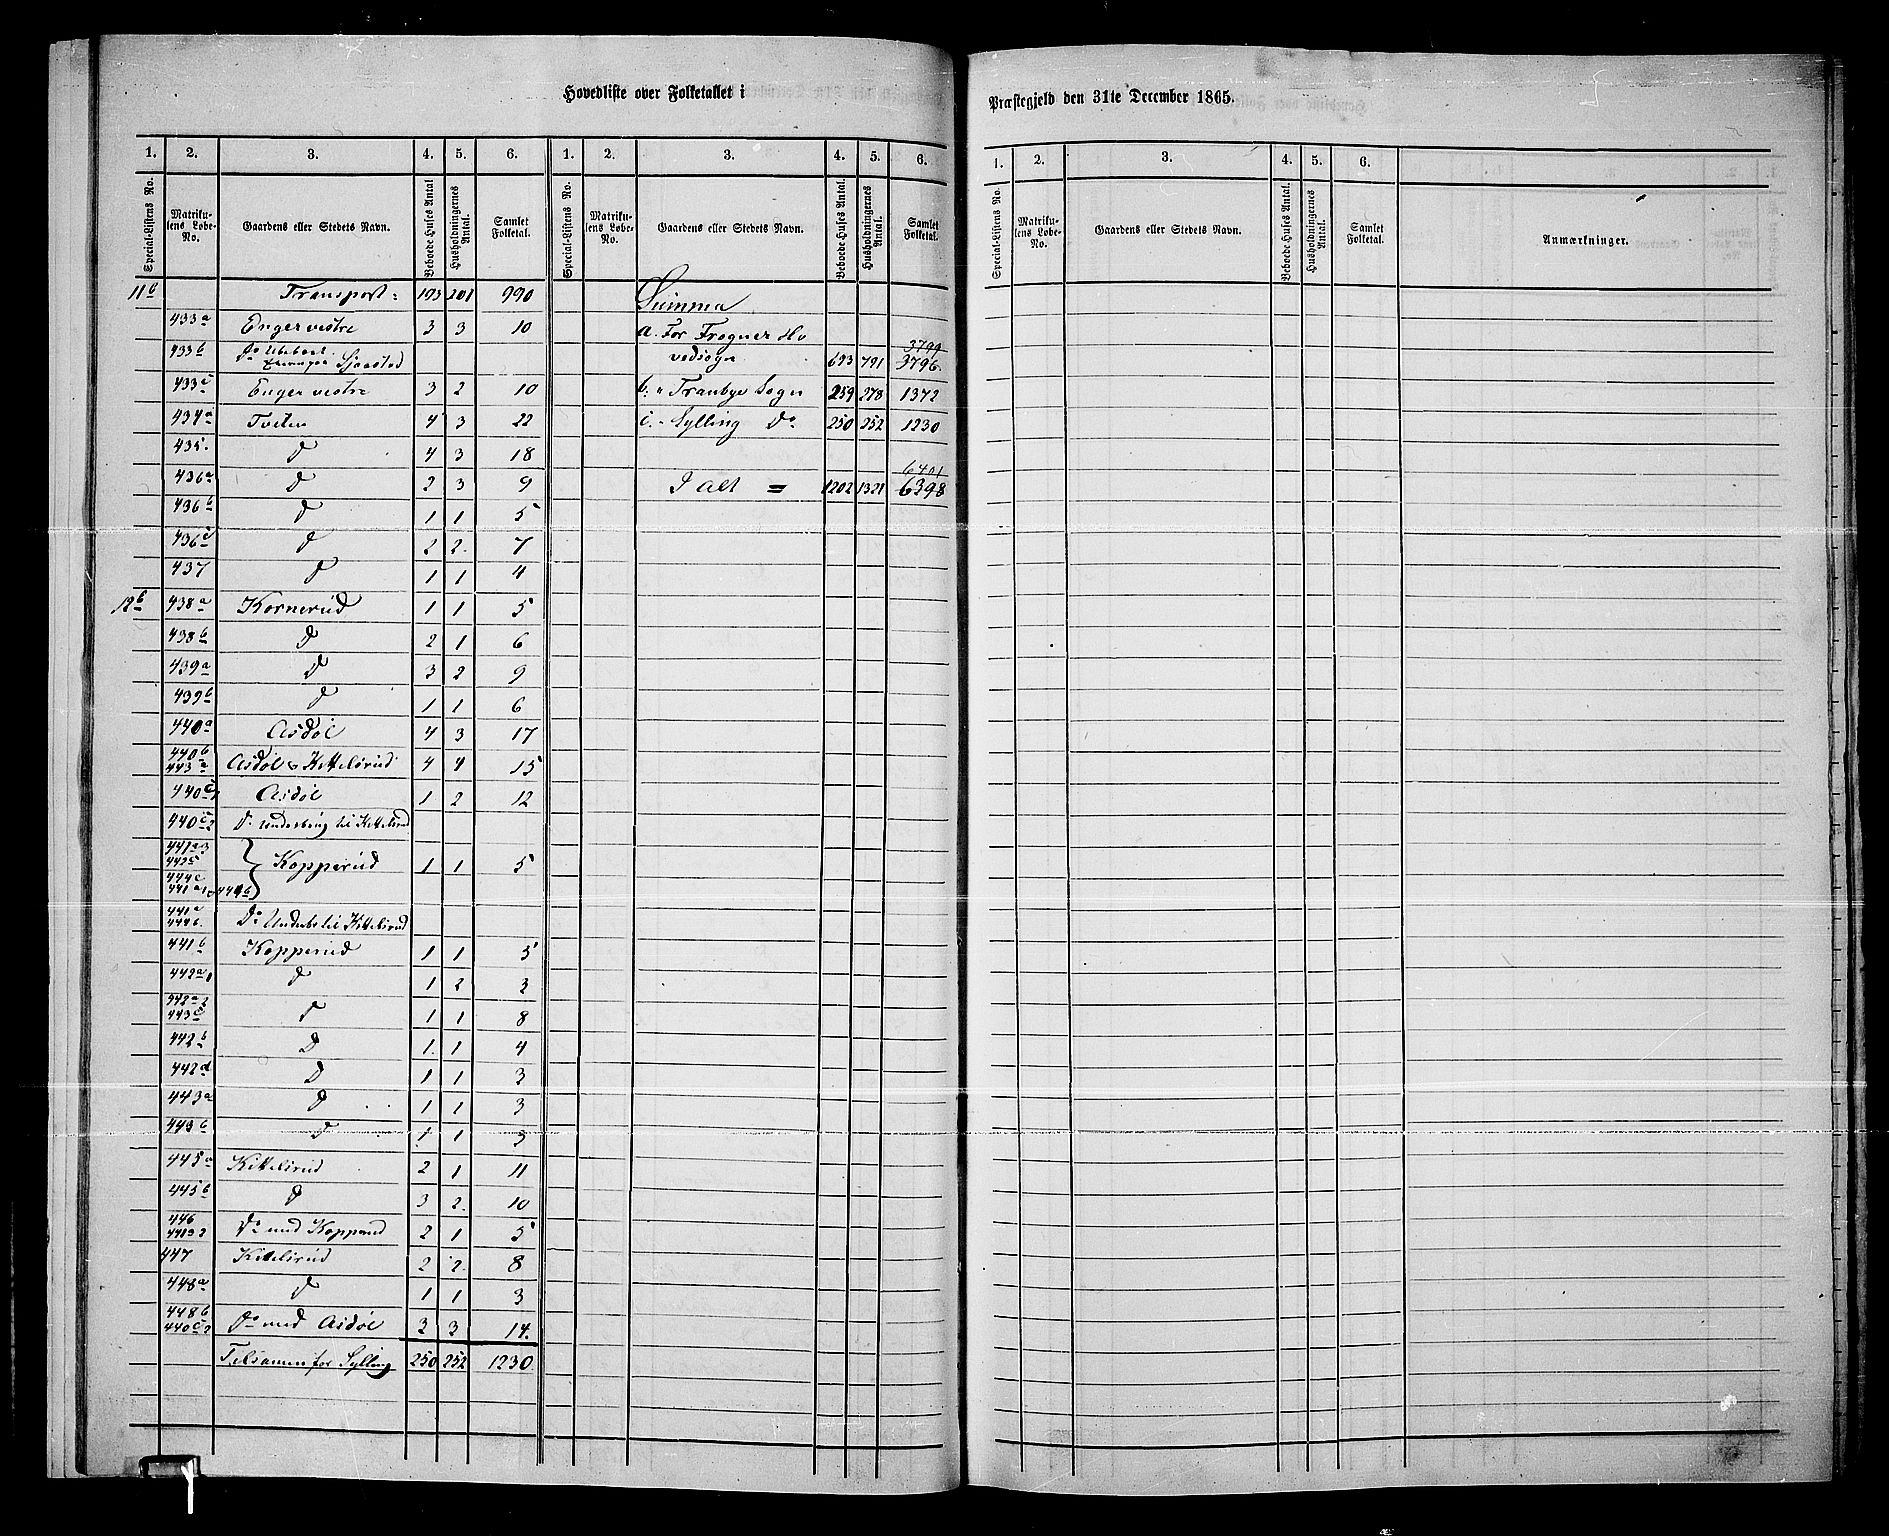 Hovedliste over Folketallet i
Præstegjeld den 31te December 1865.
1. 2. 3. 4. 5. 6. 1. 2. 3. 4. 5. 6.
1. 2. 3. 4. 5. 6.
Special-Listens No. Matrikulens Løbe-No. Gaardens eller Stedets Navn. Beboede Huses Antal Husholdningernes Antal Samlet Folketal.
Special-Listens No. Matrikulens Løbe-No. Gaardens eller Stedets Navn. Beboede Huses Antal. Husholdningernes Antal. Samlet Folketal.
Special-Listens No. Matrikulens Løbe-No. Gaardens eller Stedets Navn. Beboede Huses Antal. Husholdningernes Antal. Samlet Folketal. Anmærkninger.
11b Transport: 193 201 990
433a Enger vestre 3 3 10
433b Do Sjaastad
433c Enger vestre 3 2 10
434a Tveten 4 3 22
435. D 4 3 18
436a D 2 3 9
436b D 1 1 5
436c D 2 2. 7
437 D 1 1 4
12b 438a Kornerud 1 1 5
438b D 2 1 6
439a D 3 2 9
439b D 1 1 6
440a Asdøl 4 3 17
440b
443a Asdøl & Kittelsrud 4 4 15
440c1 Asdøl 1 2 12
440c2 Do Underbrug til Kittelsrud
441a3
442 5
444c Kopperud 1 1 5
441a 444b
441a
444b. Do Underb. til Kittelsrud
441b Kopperud 1 1 5
442a1 D 1 2 3
442a2
443c D 1 1 8
442b D 1. 1 4
442d D 1 1 3
443a D 1 1 3
443b D 1 1 3
445a Kittelsrud 2 1 11
445b D 3 2. 10
446
441 Do med Kopperud 2 1 5
447 Kittelsrud 2 2. 8
448a D 1 1 3
448b
440c2 Do med Asdøl 3 3 14.
Tilsamen for Sylling 250 252 1230
Summa
a. For Frogner Ho
3799
vedsogn 693 791 3796.
b. " Tranbye Sogn 259 278 1372
c. - Sylling Do 250 252 1230
6401
I alt = 1202 1321 6398